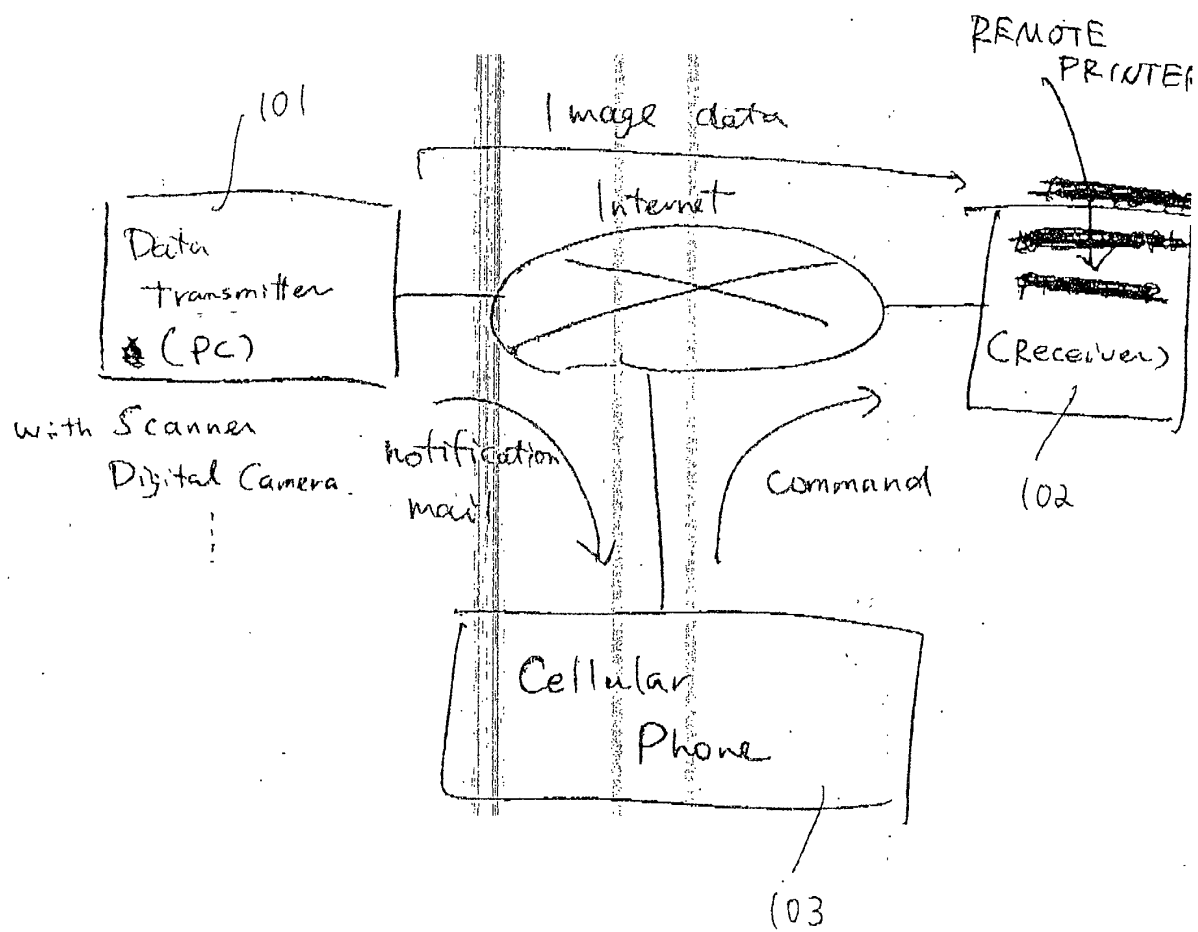 REMOTE
PRINTER
101
Image data
Internet
Data
transmitter
(PC)
(Receiver)
with Scanner
Digital Camera.
notification
mail
Command
102
Cellular
Phone
103